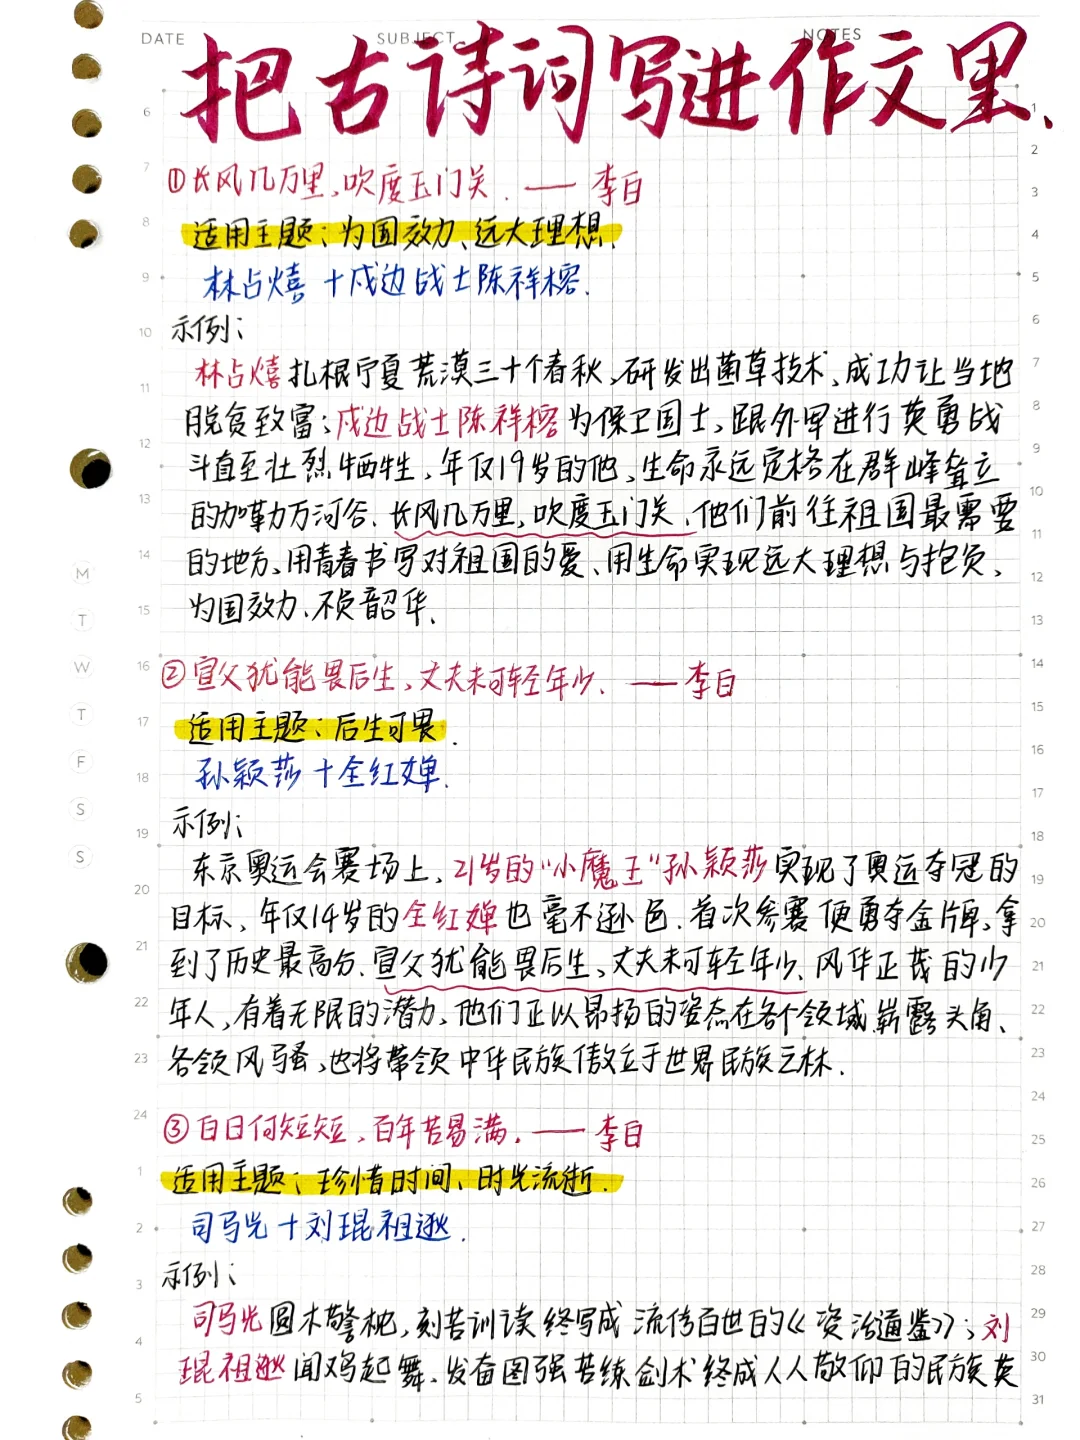 DATE SUBJECT NOTES
把古诗词写进作文里、
①长风几万里,吹度玉门关. —— 李白
适用主题:为国效力、远大理想.
林占熺+戍边战士陈祥榕.
示例:
林占熺扎根宁夏荒漠三十个春秋,研发出菌草技术,成功让当地
脱贫致富;戍边战士陈祥榕为保卫国土,跟外军进行英勇战
斗直至壮烈牺牲,年仅19岁的他,生命永远定格在群峰耸立
的加勒万河谷.长风几万里,吹度玉门关.他们前往祖国最需要
的地方,用青春书写对祖国的爱、用生命实现远大理想与抱负,
为国效力、不负韶华.
②宣父犹能畏后生,丈夫未可轻年少. ——李白
适用主题:后生可畏.
孙颖莎+全红婵.
示例:
东京奥运会赛场上,21岁的“小魔王”孙颖莎实现了奥运夺冠的
目标,年仅14岁的全红婵也毫不逊色.首次参赛便勇夺金牌,拿
到了历史最高分.宣父犹能畏后生,丈夫未可轻年少.风华正茂的少
年人,有着无限的潜力,他们正以昂扬的姿态在各个领域崭露头角、
各领风骚,也将带领中华民族傲立于世界民族之林.
③白日何短短,百年苦易满. —— 李白
适用主题:珍惜时间、时光流逝.
司马光+刘琨祖逖.
示例:
司马光圆木警枕,刻苦训读终写成流传百世的《资治通鉴》;刘
琨祖逖闻鸡起舞、发奋图强苦练剑术终成人人敬仰的民族英
6
7
8
9
10
11
12
13
14
15
16
17
18
19
20
21
22
23
24
1
2
3
4
5
M
T
W
T
F
S
S
1
2
3
4
5
6
7
8
9
10
11
12
13
14
15
16
17
18
19
20
21
22
23
24
25
26
27
28
29
30
31